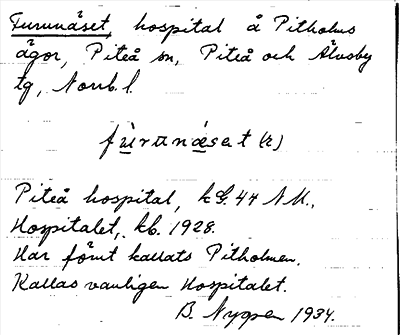 Furunäset, hospital å Pitholms
ägor, Piteå sn, Piteå och Älvsby
tg, Norrb. l.
fùrunǽsat (e)
Piteå hospital, kG. 44 N.M.,
Hospitalet, kb. 1928.
Har förut kallats Pitholmen.
Kallas vanligen Hospitalet.
B. Nygren 1934.